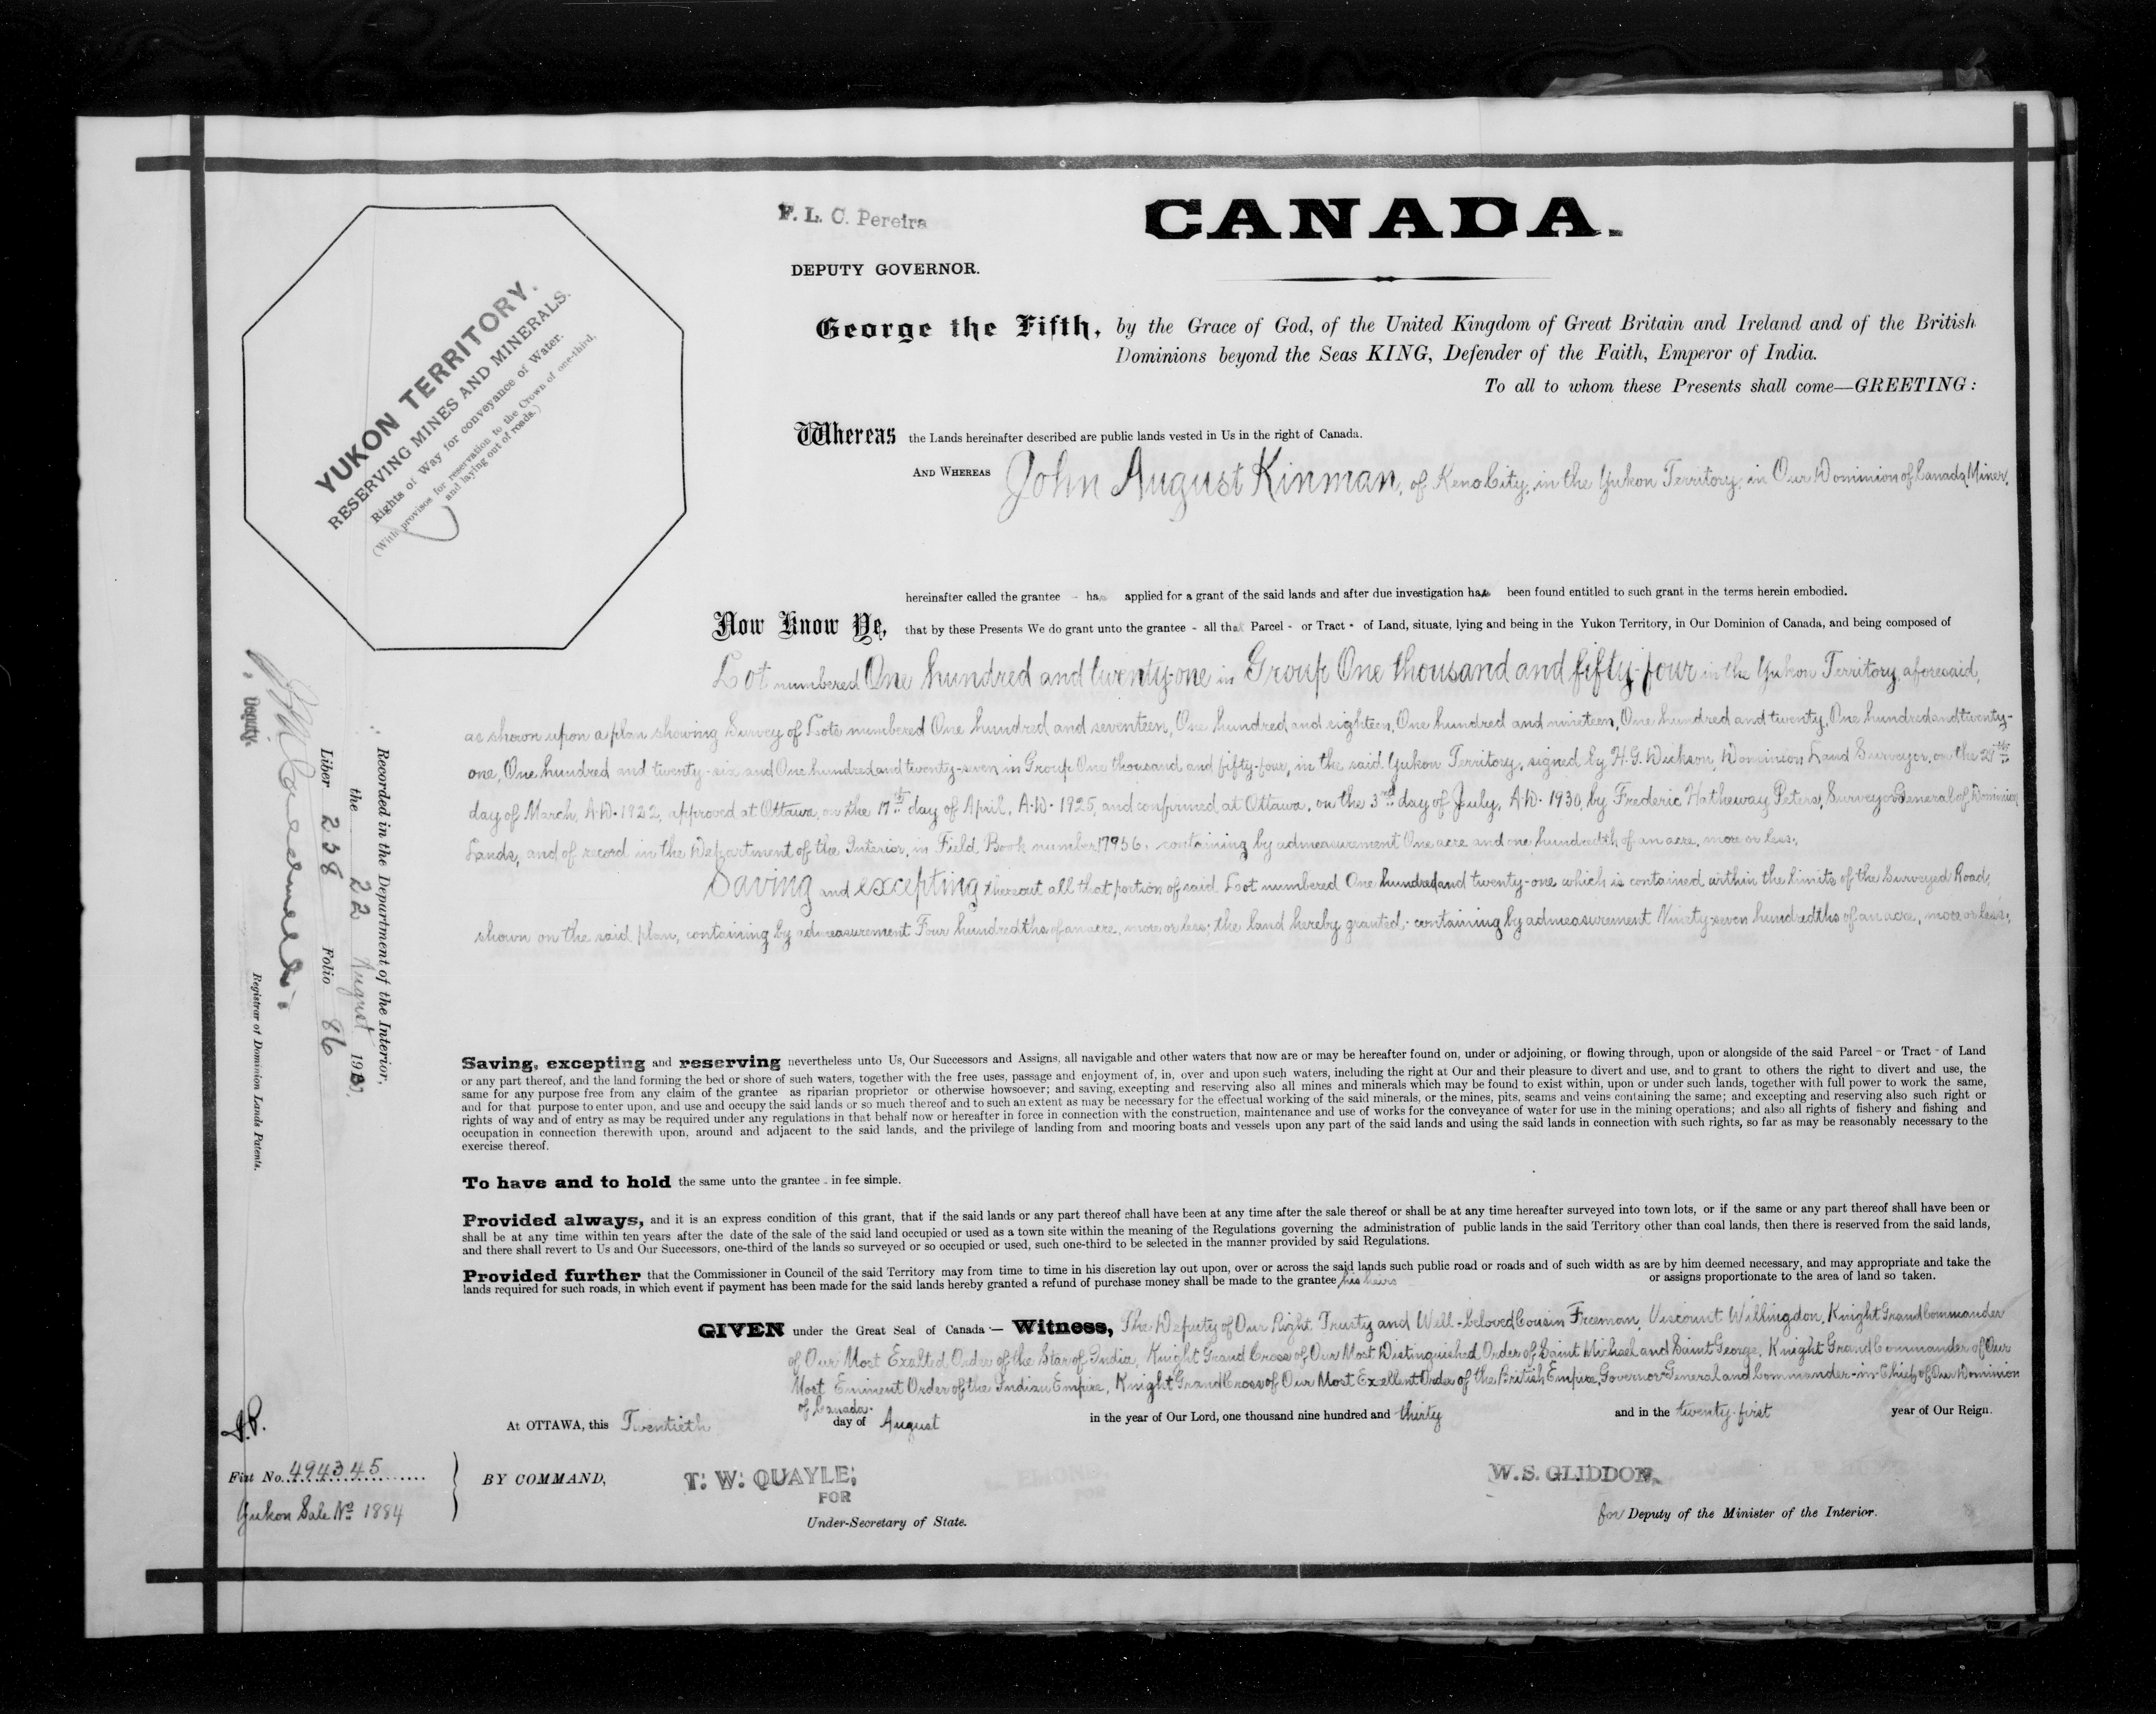 F. L. C. Pereira
DEPUTY GOVERNOR.
CANADA.
YUKON TERRITORY.
RESERVING MINES AND MINERALS.
Rights of Way for conveyance of Water.
(With provisos for reservation to the Crown of one-third,
and laying out of roads.)
George the Fifth, by the Grace of God, of the United Kingdom of Great Britain and Ireland and of the British
Dominions beyond the Seas KING, Defender of the Faith, Emperor of India.
To all to whom these Presents shall come—GREETING:
Whereas the Lands hereinafter described are public lands vested in Us in the right of Canada.
AND WHEREAS John August Kinman, of Keno City, in the Yukon Territory, in Our Dominion of Canada, Miner,
hereinafter called the grantee - has applied for a grant of the said lands and after due investigation has been found entitled to such grant in the terms herein embodied.
Now Know Ye, that by these Presents We do grant unto the grantee - all that Parcel - or Tract - of Land, situate, lying and being in the Yukon Territory, in Our Dominion of Canada, and being composed of
Lot numbered One hundred and twenty-one in Group One thousand and fifty-four in the Yukon Territory, aforesaid,
as shown upon a plan showing Survey of Lots numbered One hundred and seventeen, One hundred and eighteen, One hundred and nineteen, One hundred and twenty, One hundred and twenty-
one, One hundred and twenty-six and One hundred and twenty-seven in Group One thousand and fifty-four, in the said Yukon Territory, signed by H. G. Dickson, Dominion Land Surveyor, on the 29th
day of March, A.D. 1922, approved at Ottawa, on the 17th day of April, A.D. 1925, and confirmed at Ottawa, on the 3rd day of July, A.D. 1930, by Frederic Hatheway Peters, Surveyor General of Dominion
Lands, and of record in the Department of the Interior, in Field Book number 17956, containing by admeasurement One acre and one hundredth of an acre, more or less;
Saving and excepting thereout all that portion of said Lot numbered One hundred and twenty-one which is contained within the limits of the Surveyed Road,
shown on the said plan, containing by admeasurement Four hundredths of an acre, more or less; the land hereby granted, containing by admeasurement Ninety-seven hundredths of an acre, more or less;
Saving, excepting and reserving nevertheless unto Us, Our Successors and Assigns, all navigable and other waters that now are or may be hereafter found on, under or adjoining, or flowing through, upon or alongside of the said Parcel - or Tract - of Land
or any part thereof, and the land forming the bed or shore of such waters, together with the free uses, passage and enjoyment of, in, over and upon such waters, including the right at Our and their pleasure to divert and use, and to grant to others the right to divert and use, the
same for any purpose free from any claim of the grantee as riparian proprietor or otherwise howsoever; and saving, excepting and reserving also all mines and minerals which may be found to exist within, upon or under such lands, together with full power to work the same,
and for that purpose to enter upon, and use and occupy the said lands or so much thereof and to such an extent as may be necessary for the effectual working of the said minerals, or the mines, pits, seams and veins containing the same; and excepting and reserving also such right or
rights of way and of entry as may be required under any regulations in that behalf now or hereafter in force in connection with the construction, maintenance and use of works for the conveyance of water for use in the mining operations; and also all rights of fishery and fishing and
occupation in connection therewith upon, around and adjacent to the said lands, and the privilege of landing from and mooring boats and vessels upon any part of the said lands and using the said lands in connection with such rights, so far as may be reasonably necessary to the
exercise thereof.
To have and to hold the same unto the grantee - in fee simple.
Provided always, and it is an express condition of this grant, that if the said lands or any part thereof shall have been at any time after the sale thereof or shall be at any time hereafter surveyed into town lots, or if the same or any part thereof shall have been or
shall be at any time within ten years after the date of the sale of the said land occupied or used as a town site within the meaning of the Regulations governing the administration of public lands in the said Territory other than coal lands, then there is reserved from the said lands,
and there shall revert to Us and Our Successors, one-third of the lands so surveyed or so occupied or used, such one-third to be selected in the manner provided by said Regulations.
Provided further that the Commissioner in Council of the said Territory may from time to time in his discretion lay out upon, over or across the said lands such public road or roads and of such width as are by him deemed necessary, and may appropriate and take the
lands required for such roads, in which event if payment has been made for the said lands hereby granted a refund of purchase money shall be made to the grantee his heirs or assigns proportionate to the area of land so taken.
GIVEN under the Great Seal of Canada:— Witness, The Deputy of Our Right Trusty and Well-beloved Cousin Freeman, Viscount Willingdon, Knight Grand Commander
of Our Most Exalted Order of the Star of India, Knight Grand Cross of Our Most Distinguished Order of Saint Michael and Saint George, Knight Grand Commander of Our
Most Eminent Order of the Indian Empire, Knight Grand Cross of Our Most Excellent Order of the British Empire, Governor General and Commander-in-Chief of Our Dominion
of Canada.
At OTTAWA, this Twentieth day of August in the year of Our Lord, one thousand nine hundred and thirty and in the twenty-first year of Our Reign.
BY COMMAND,
T. W. QUAYLE,
FOR
Under-Secretary of State.
W. S. GLIDDON,
for Deputy of the Minister of the Interior.
Fiat No. 494345
Yukon Sale No 1884
Recorded in the Department of the Interior,
the 22 August 1930,
Liber 258 Folio 86
Deputy.
Registrar of Dominion Lands Patents.